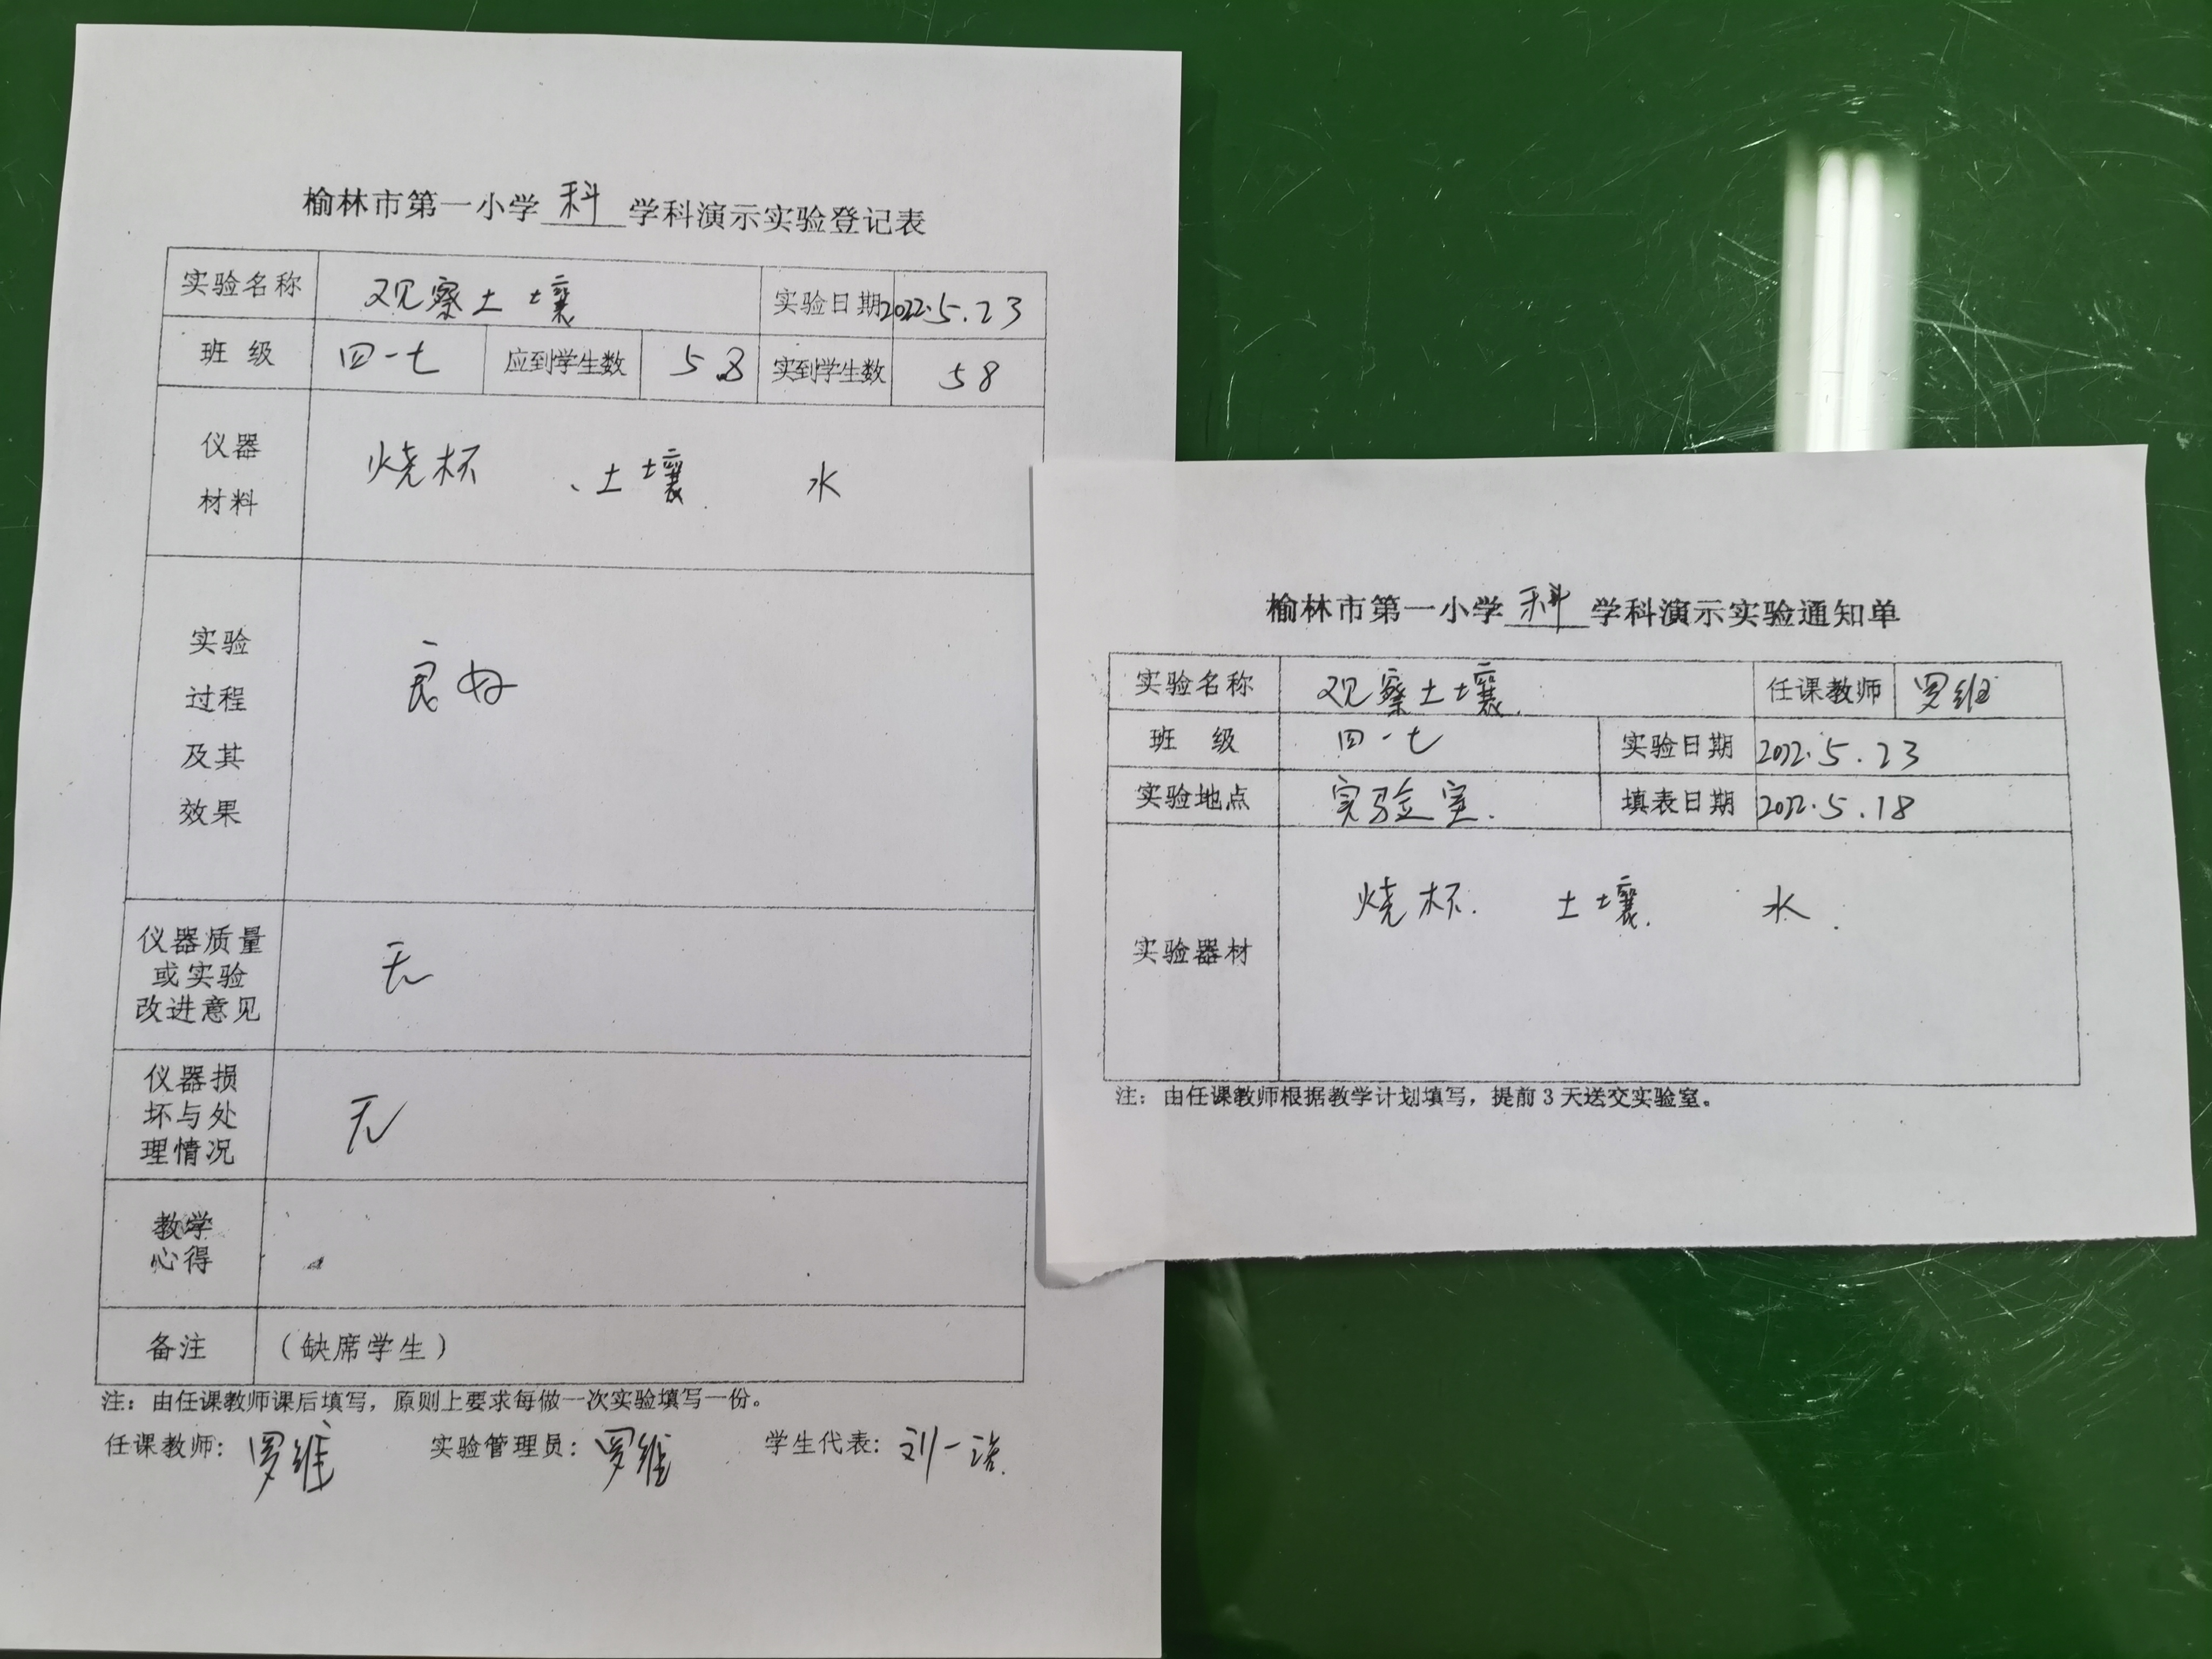 榆林市第一小学 科 学科演示实验登记表
实验名称 观察土壤 实验日期 2022.5.23
班级 四一七 应到学生数 58 实到学生数 58
仪器
材料
烧杯 、土壤 水
实验
过程
及其
效果
良好
仪器质量
或实验
改进意见
无
仪器损
坏与处
理情况
无
教学
心得
备注 (缺席学生)
注：由任课教师课后填写，原则上要求每做一次实验填写一份。
任课教师：罗维 实验管理员：罗维 学生代表：刘一
榆林市第一小学 科 学科演示实验通知单
实验名称 观察土壤. 任课教师 罗维
班级 四一七 实验日期 2022.5.23
实验地点 实验室. 填表日期 2022.5.18
实验器材 烧杯. 土壤. 水.
注：由任课教师根据教学计划填写，提前3天送交实验室。